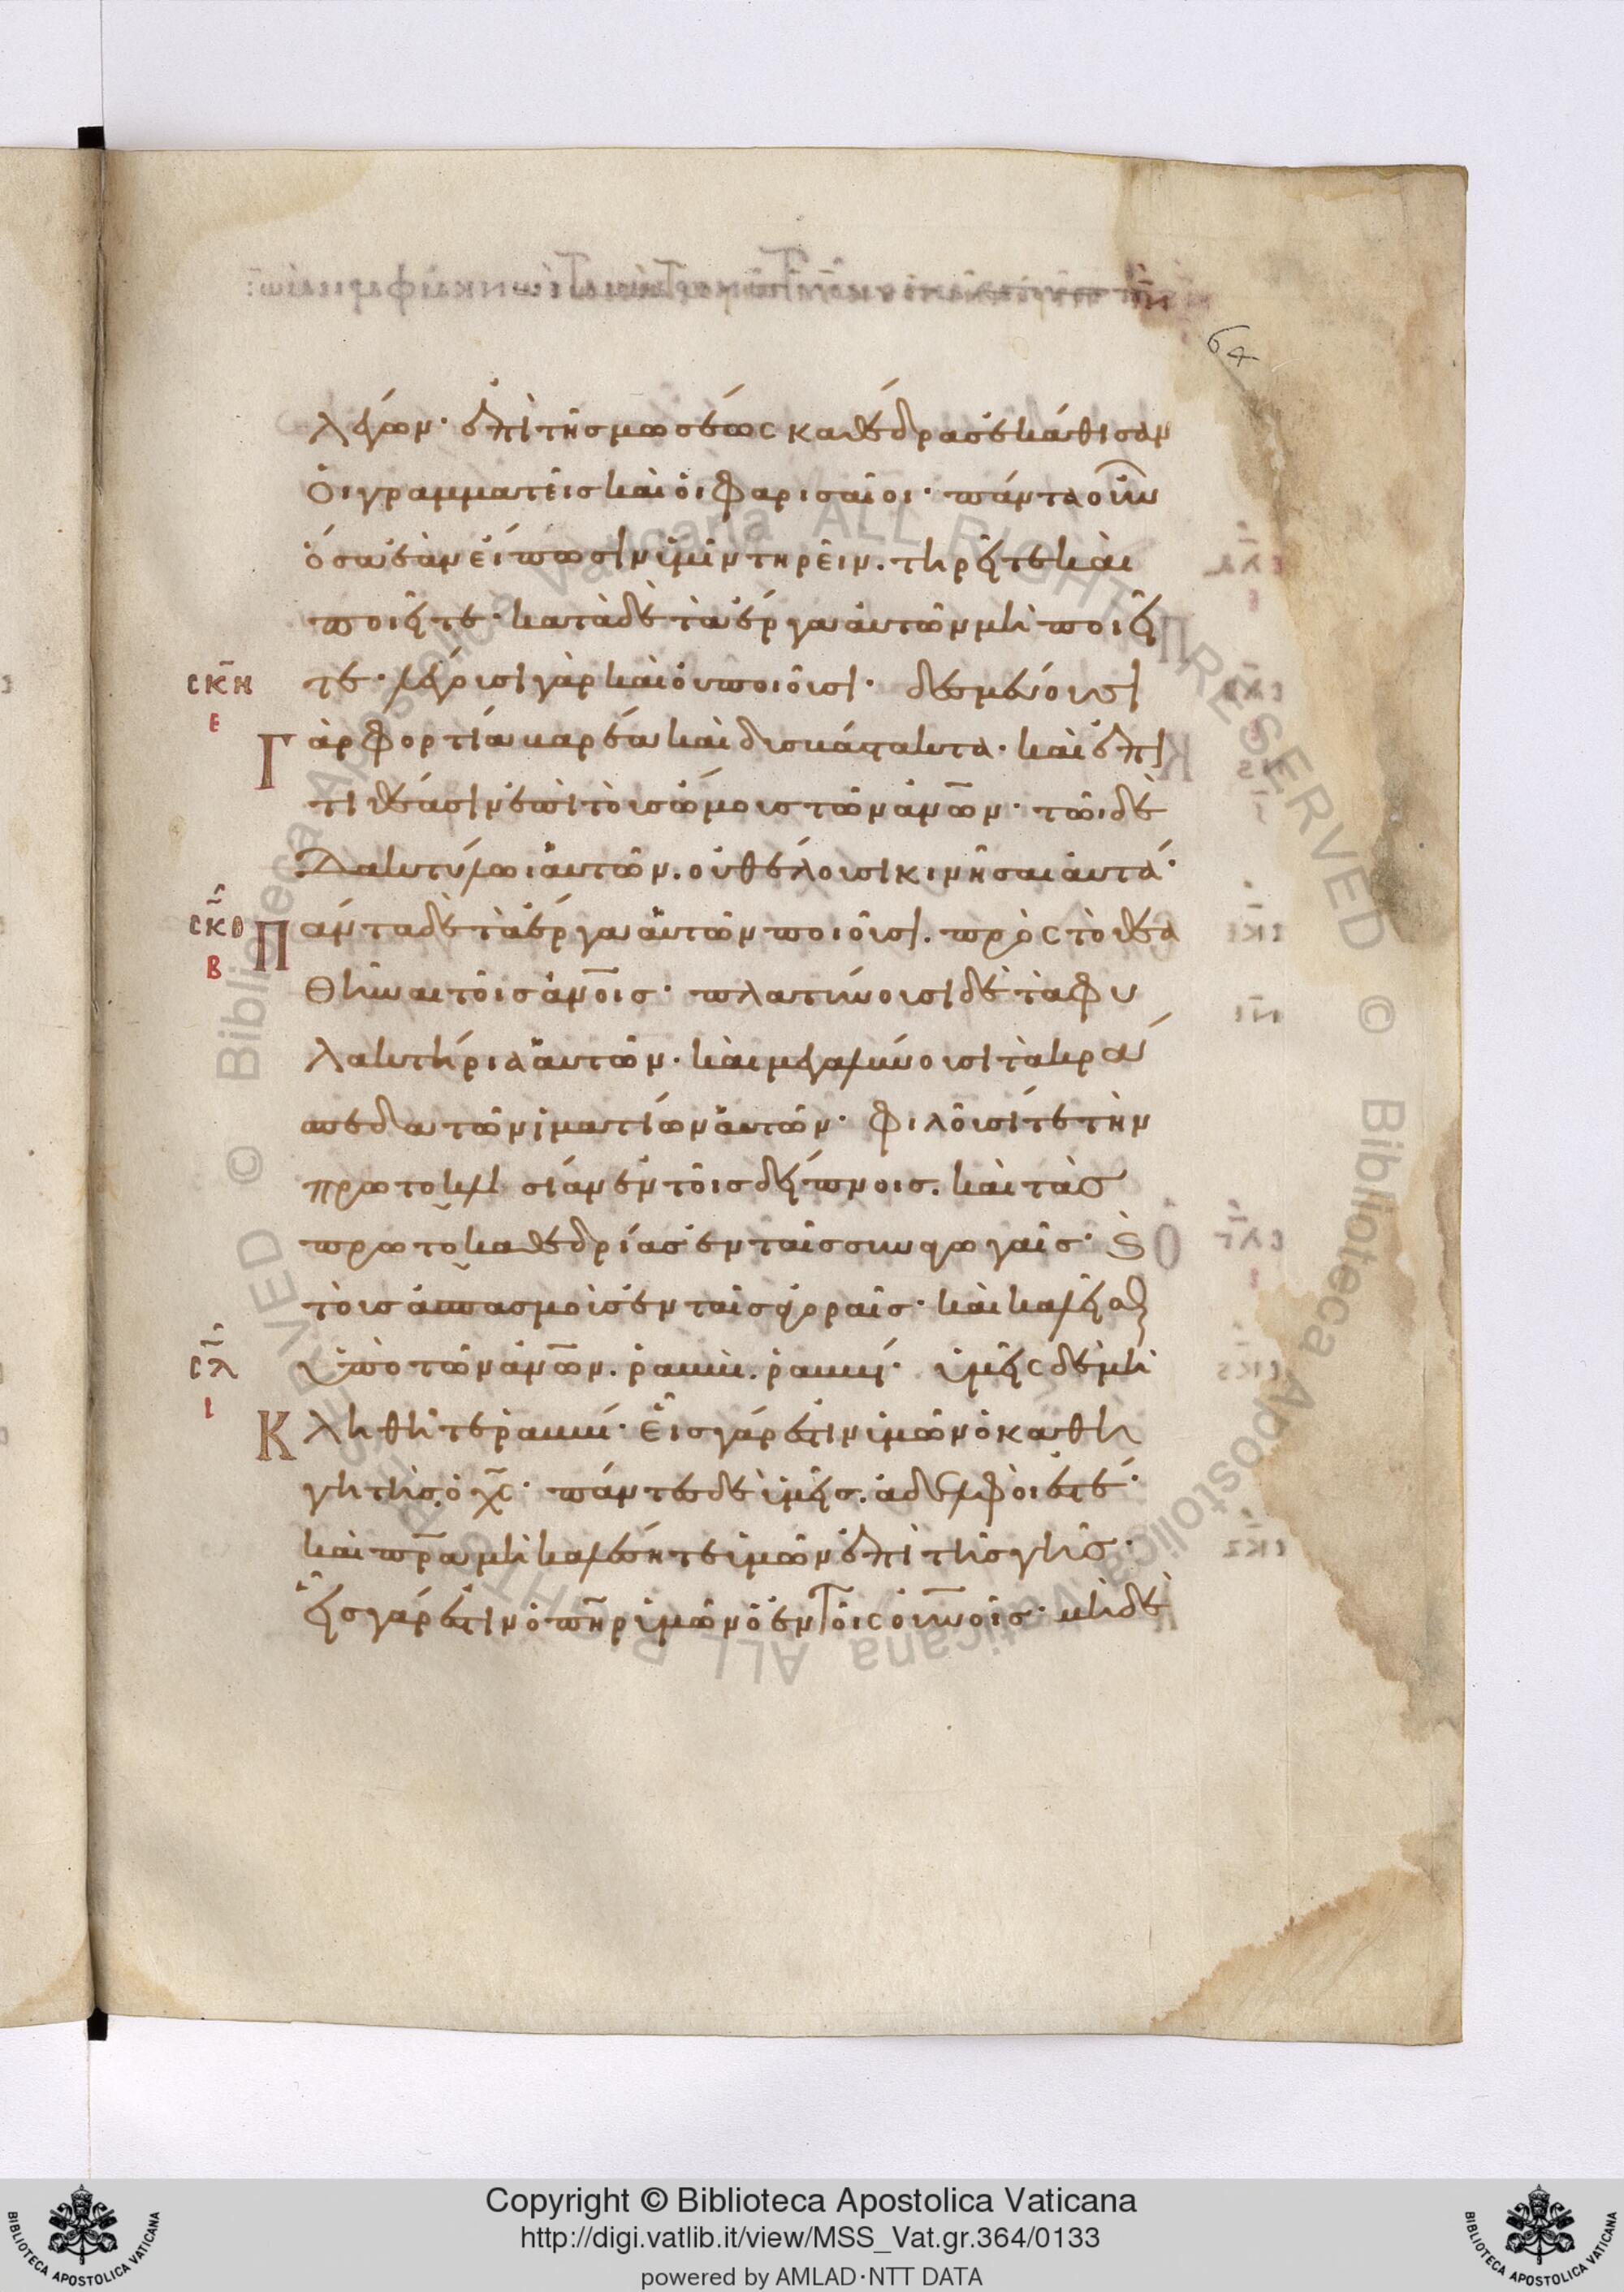 64
λέγων· ἐπὶ τῆς μωσέως καθέδρας ἐκάθισαν
ὁι γραμματεῖς καὶ ὁι φαρισαῖοι· πάντα οὖν
ὅσα ἐὰν εἴπωσιν ὑμῖν τηρεῖν. τηρεῖτε καὶ
ποιεῖτε· κατὰ δὲ τὰ ἔργα αὐτῶν μὴ ποιεῖ
τε· λέγουσι γὰρ καὶ οὐ ποιοῦσι· δεσμεύουσι
ϲκη
ε
Γ ὰρ φορτία βαρέα καὶ δυσβάστακτα· καὶ ἐπι
τιθέασιν ἐπὶ τοὺς ὤμους τῶν ἀν̅ω̅ν· τῶι δὲ
δακτύλωι ἀυτῶν. οὐ θέλουσι κινῆσαι ἀυτά·
ϲκθ
β
Π άντα δὲ τὰ ἔργα ἀυτῶν ποιοῦσι. πρὸς τὸ θεα
θῆναι τοῖς ἀν̅ο̅ις· πλατύνουσι δὲ τὰ φυ
λακτήρια ἀυτῶν· καὶ μεγαλύνουσι τὰ κρά
σπεδα τῶν ἱματίων ἀυτῶν· φιλοῦσί τε τὴν
πρωτοκλισίαν ἐν τοῖς δείπνοις. καὶ τὰς
πρωτοκαθεδρίας ἐν ταῖς συναγωγαῖς· ϗ
τοὺς ἀσπασμοὺς ἐν ταῖς ἀγοραῖς· καὶ καλεῖσθαι
ϲλ
ι
ὑπὸ τῶν ἀν̅ω̅ν. ῥαββὶ. ῥαββί· ὑμεῖς δὲ μὴ
Κ ληθῆτε ῥαββί· εἷς γάρ ἐστιν ὑμῶν ὁ καθη
γητὴς. ὁ χ̅ς· πάντες δὲ ὑμεῖς. ἀδελφοί ἐστέ·
καὶ π̅ρ̅α μὴ καλέσητε ὑμῶν ἐπὶ τῆς γῆς·
εἷς γάρ ἐστιν ὁ π̅η̅ρ ὑμῶν ὁ ἐν τοῖς οὐ̅ν̅οῖς· μηδὲ
Copyright © Biblioteca Apostolica Vaticana
http://digi.vatlib.it/view/MSS_Vat.gr.364/0133
powered by AMLAD·NTT DATA
BIBLIOTECA APOSTOLICA VATICANA
BIBLIOTECA APOSTOLICA VATICANA
© Biblioteca Apostolica Vaticana ALL RIGHTS RESERVED
© Biblioteca Apostolica Vaticana ALL RIGHTS RESERVED